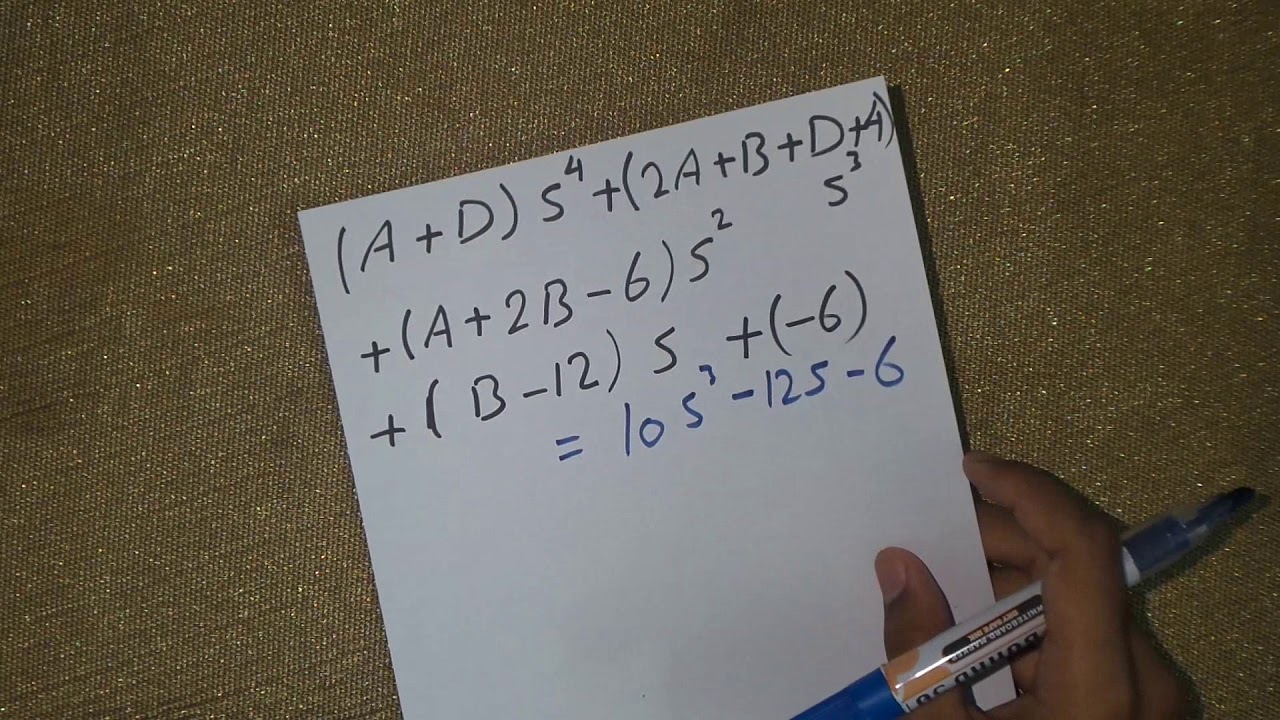 (A+D) S⁴+(2A+B+D+4)
S³
+(A+2B-6) S²
+(B-12) S +(-6)
= 10 S³ -12S -6
WHITEBOARD MARKER